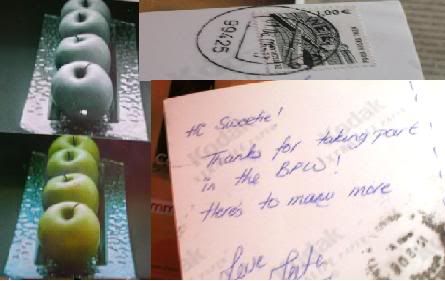 99425
1,00 €
Hi Sweetie!
Thanks for taking part
in the BPW!
Here's to many more
Love
Kodak